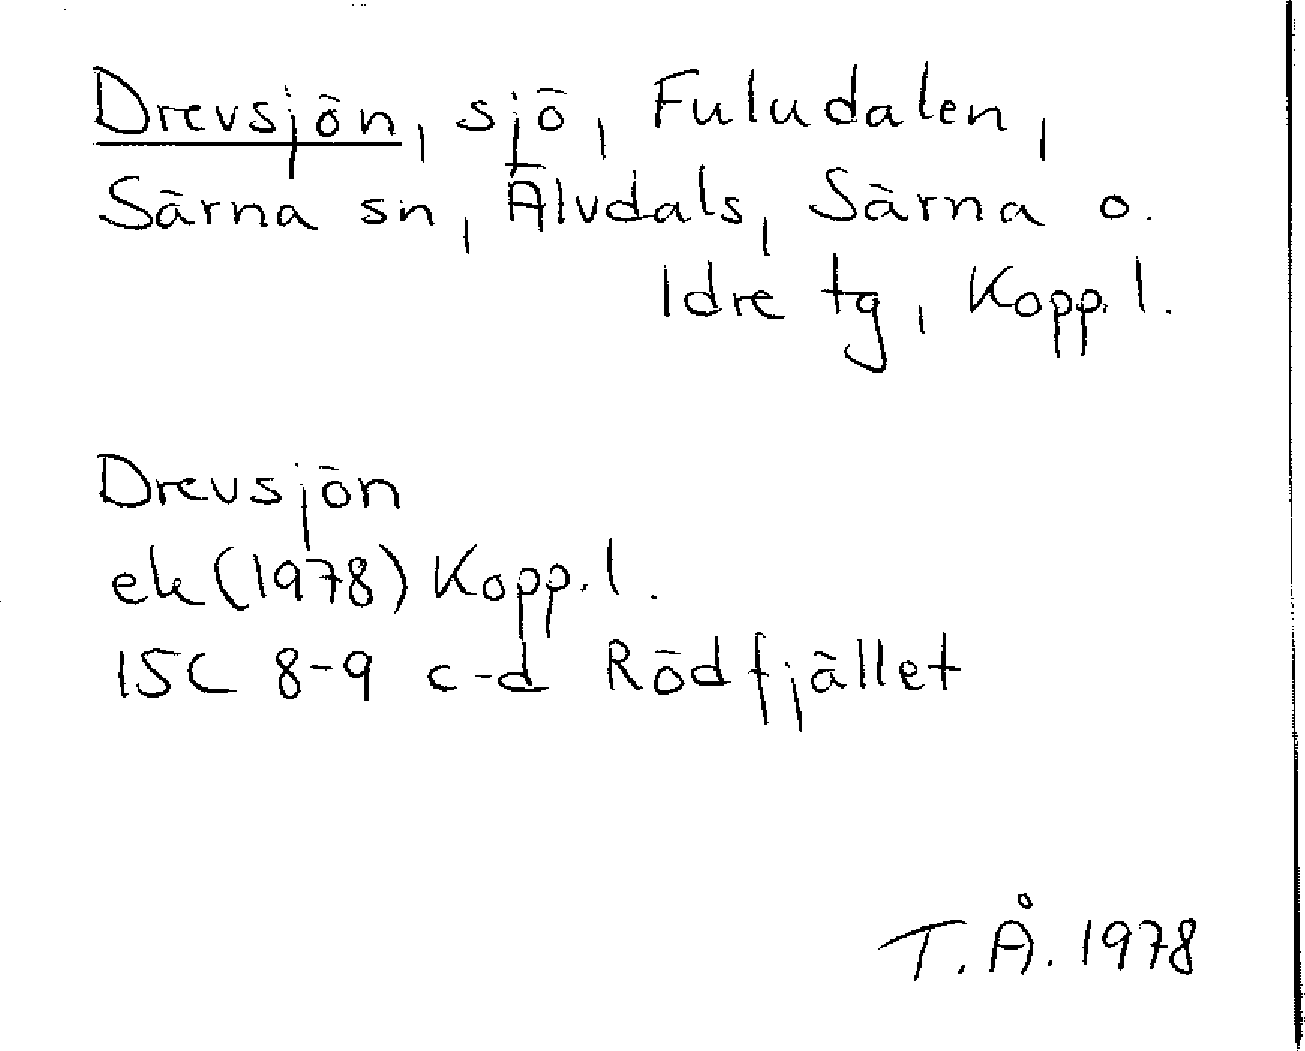 Drevsjön, sjö, Fuludalen,
Särna sn, Älvdals, Särna o.
Idre tg, Kopp. l.
Drevsjön
ek (1978) Kopp. l.
15C 8-9 c-d Rödfjället
T. Å. 1978